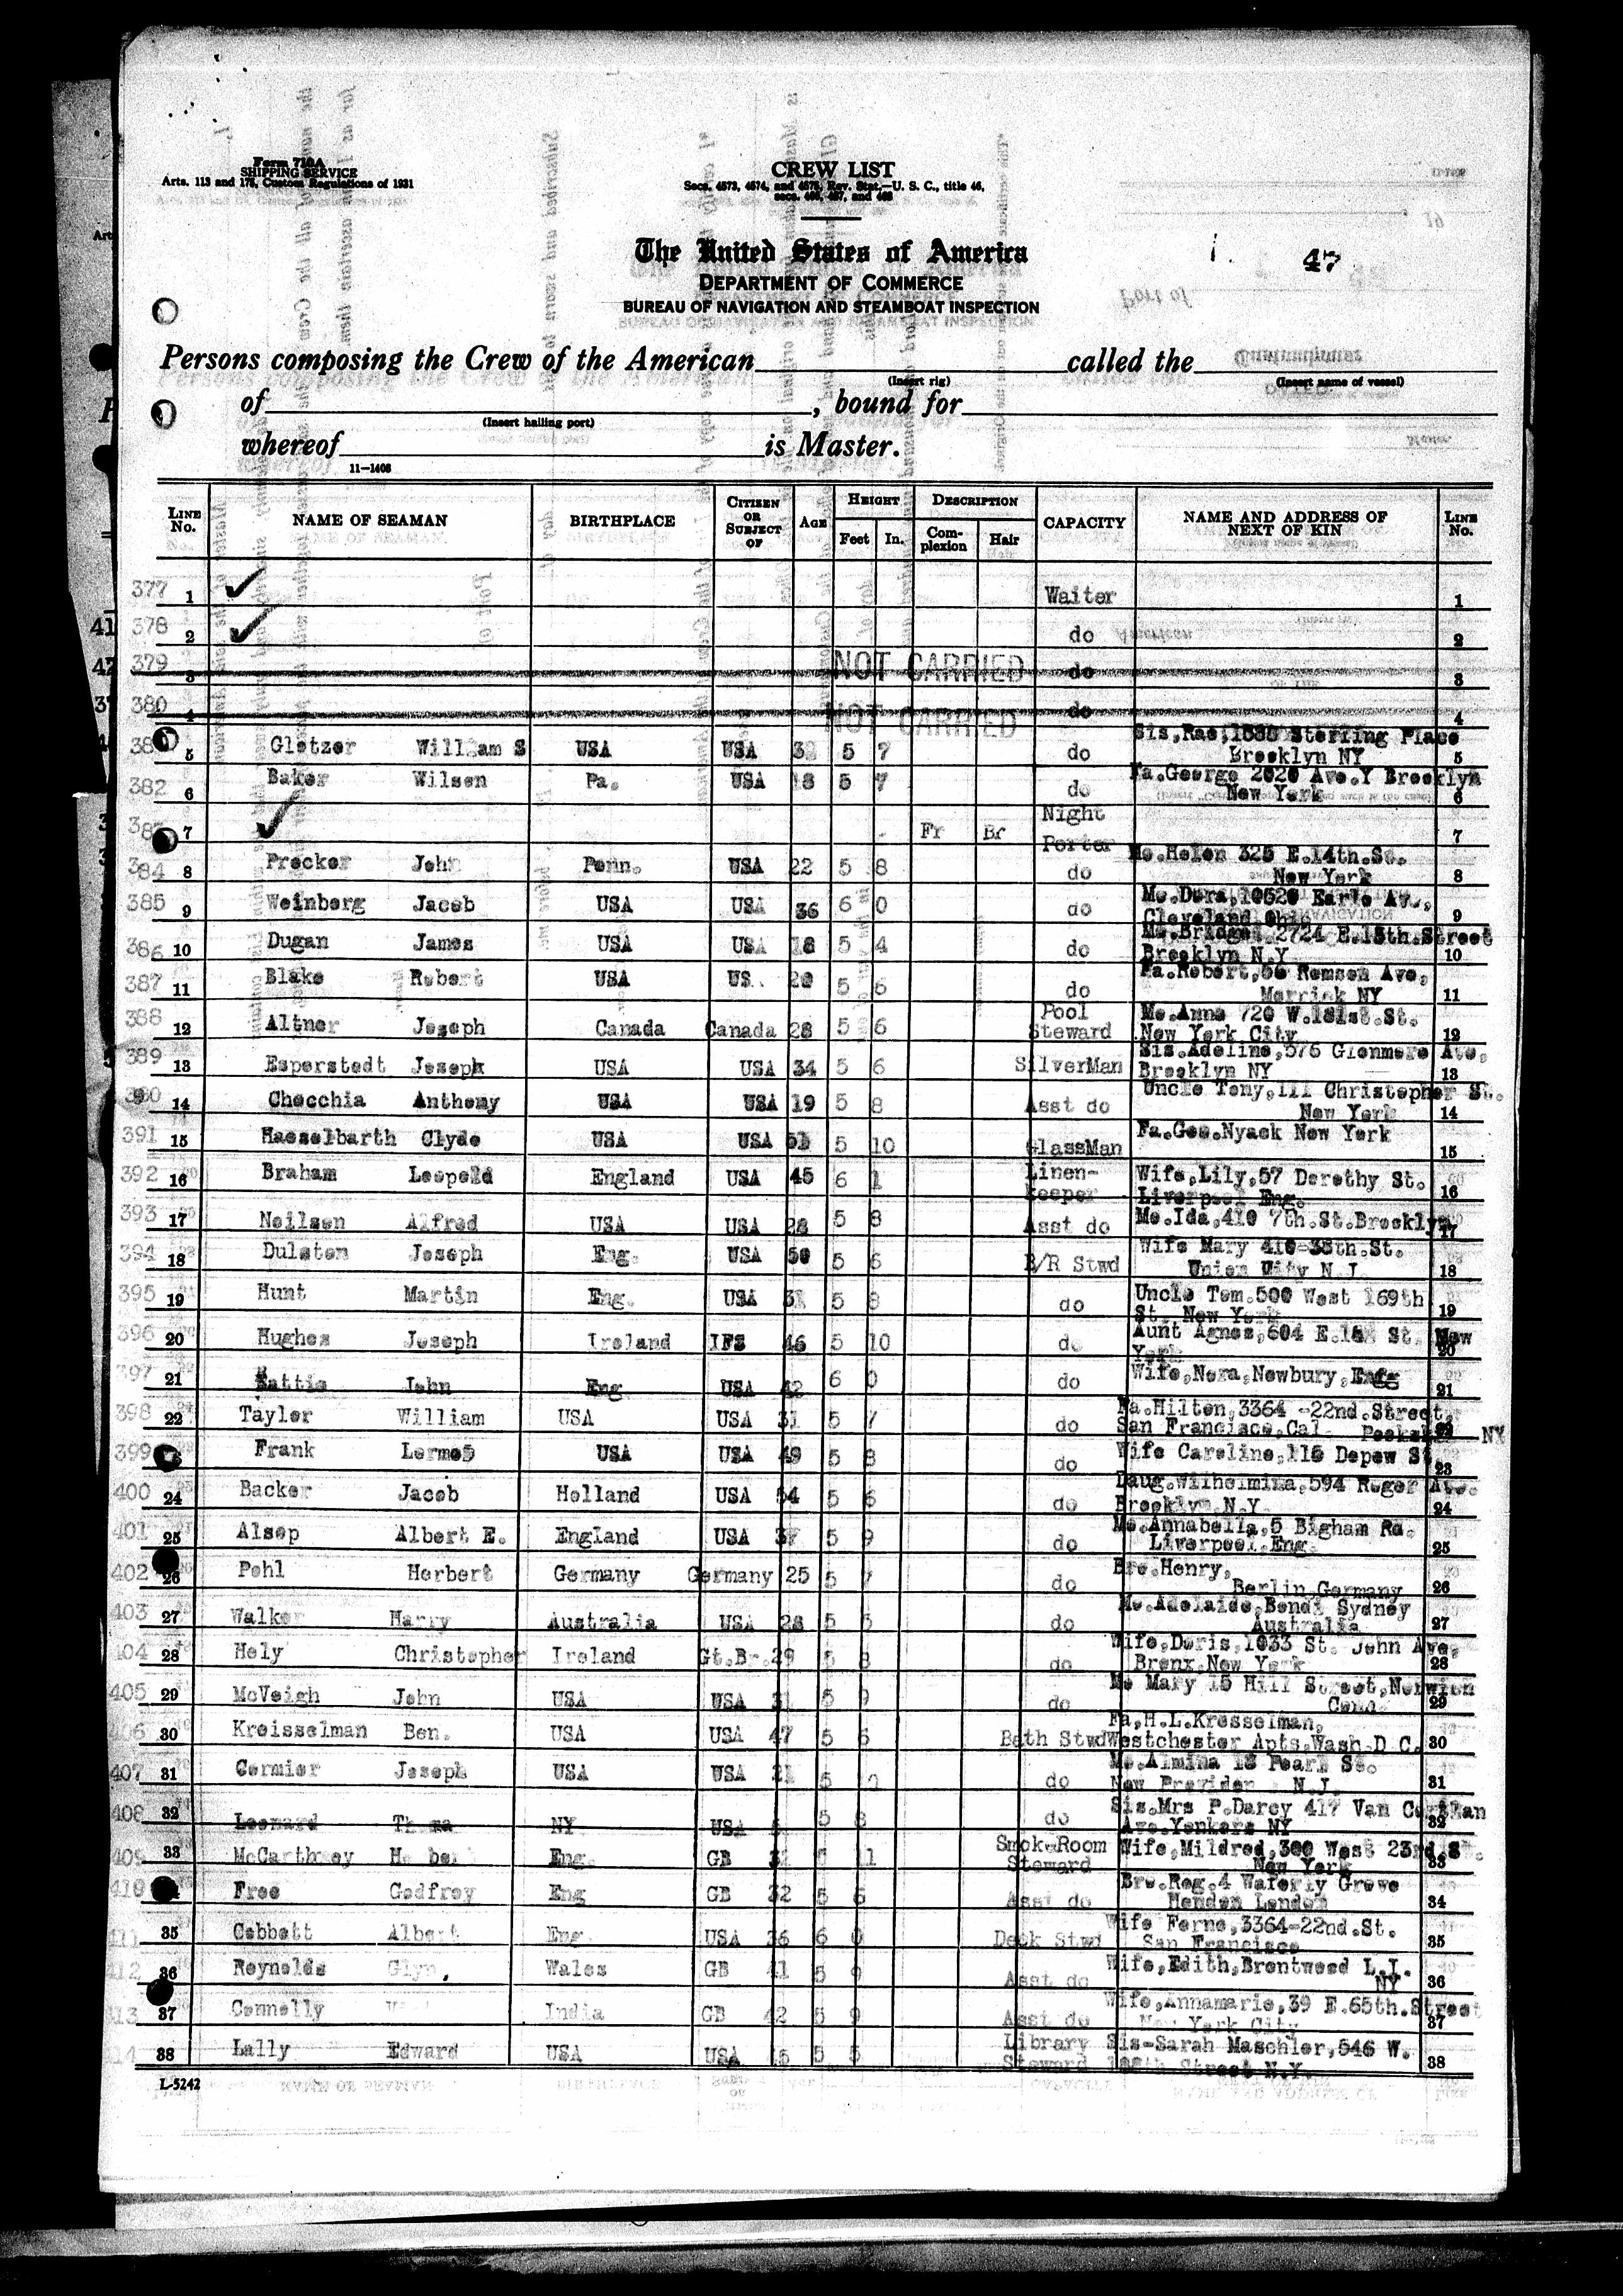 Form 710A
SHIPPING SERVICE
Arts. 113 and 175, Custom Regulations of 1931
CREW LIST
Secs. 4573, 4574, and 4575, Rev. Stat.—U. S. C., title 46,
secs. 466, 467, and 468
The United States of America
47
DEPARTMENT OF COMMERCE
BUREAU OF NAVIGATION AND STEAMBOAT INSPECTION
Persons composing the Crew of the American called the
(Insert rig) (Insert name of vessel)
of , bound for
(Insert hailing port)
whereof is Master.
11—1408
LINE No. NAME OF SEAMAN BIRTHPLACE CITIZEN OR SUBJECT OF AGE HEIGHT Feet In. DESCRIPTION Complexion Hair CAPACITY NAME AND ADDRESS OF NEXT OF KIN LINE No.
377 1 Waiter 1
378 2 do 2
379 3 NOT CARRIED do 3
380 4 NOT CARRIED do 4
5 Gletzer William S USA USA 5 7 do Sis,Rae, Sterling Place Brooklyn NY 5
382 6 Baker Wilsen Pa. USA 18 5 7 do Fa.George 2020 Ave.Y Brooklyn New York 6
7 Fr Br Night Porter 7
384 8 Procker John Penn. USA 22 5 8 do Mo.Helen 325 E.14th.St. New York 8
385 9 Weinberg Jacob USA USA 36 6 0 do Mo.Dora,10520 Earle Av., Cleveland Ohio 9
386 10 Dugan James USA USA 18 5 4 do 2724 E.15th.Street Brooklyn N.Y 10
387 11 Blake Robert USA US 20 5 6 do Fa.Robert,56 Remsen Ave, Merrick NY 11
388 12 Altner Joseph Canada Canada 28 5 6 Pool Steward Mo.Anna 720 W.181st.St. New York City 12
389 13 Esperstedt Joseph USA USA 34 5 6 SilverMan Sis.Adeline,576 Glenmore Ave, Brooklyn NY 13
14 Checchia Anthony USA USA 19 5 8 Asst do Uncle Tony,111 Christopher St. New York 14
391 15 Haeselbarth Clyde USA USA 5 10 GlassMan Fa.Geo.Nyack New York 15
392 16 Braham Leopold England USA 45 6 1 Linen-keeper Wife,Lily,57 Dorothy St. Liverpool Eng. 16
393 17 Neilsen Alfred USA USA 28 5 8 Asst do Mo.Ida,410 7th.St.Brooklyn, 17
394 18 Dulston Joseph Eng. USA 50 5 6 B/R Stwd Wife Mary 410-38th.St. Union City N.J. 18
395 19 Hunt Martin Eng. USA 5 8 do Uncle Tom.500 West 169th St. New York 19
396 20 Hughes Joseph Ireland IFS 46 5 10 do Aunt Agnes,604 E.16 St. New York 20
397 21 Rattie John Eng USA 42 6 0 do Wife,Nora,Newbury,Eng 21
398 22 Taylor William USA USA 31 5 7 do Fa.Hilton,3364-22nd.Street, San Francisco,Cal 22
399 Frank Lermos USA USA 49 5 8 do Wife Caroline,116 Depew St NY 23
400 24 Backer Jacob Holland USA 54 5 6 do Daug.Wilhelmina,594 Roger Ave. Brooklyn N.Y. 24
401 25 Alsop Albert E. England USA 37 5 9 do Mo.Annabella,5 Bigham Rd. Liverpool.Eng. 25
402 26 Pohl Herbert Germany Germany 25 5 7 do Bro.Henry, Berlin,Germany 26
403 27 Walker Harry Australia USA 28 5 5 do Mo.Adelaide,Bondi Sydney Australia 27
404 28 Hely Christopher Ireland Gt.Br. 29 5 8 do Wife,Doris,1033 St. John Ave, Bronx.New York 28
405 29 McVeigh John USA USA 31 5 9 do Mo Mary 15 Hill Street,Norwich Conn. 29
406 30 Kreisselman Ben. USA USA 47 5 6 Bath Stwd Fa,H.L.Kresselman, Westchester Apts,Wash D C. 30
407 31 Cormier Joseph USA USA 21 5 do Mo.Almina 18 Pearl St. New Providen N.J. 31
408 32 Leonard NY USA 5 8 do Sis.Mrs P.Darcy 417 Van Ave.Yonkers NY 32
409 33 McCarthney Eng. GB 5 11 Smok.Room Steward Wife,Mildred,300 West 23rd.St. New York 33
410 Free Godfrey Eng GB 32 5 6 Asst do Bro.Reg.4 Waferly Grove Hendon London 34
411 35 Cobbett Albert Eng. USA 36 6 0 Deck Stwd Wife Ferne,3364-22nd.St. San Francisco 35
412 36 Reynolds Glyn. Wales GB 41 5 9 Asst do Wife,Edith,Brentwood L.I. NY 36
413 37 Connolly India GB 42 5 9 Asst do Wife,Annamarie,39 E.65th.Street New York City 37
414 38 Lally Edward USA USA 5 5 Library Steward Sis-Sarah Maschler,546 W. Street N.Y. 38
L-5242